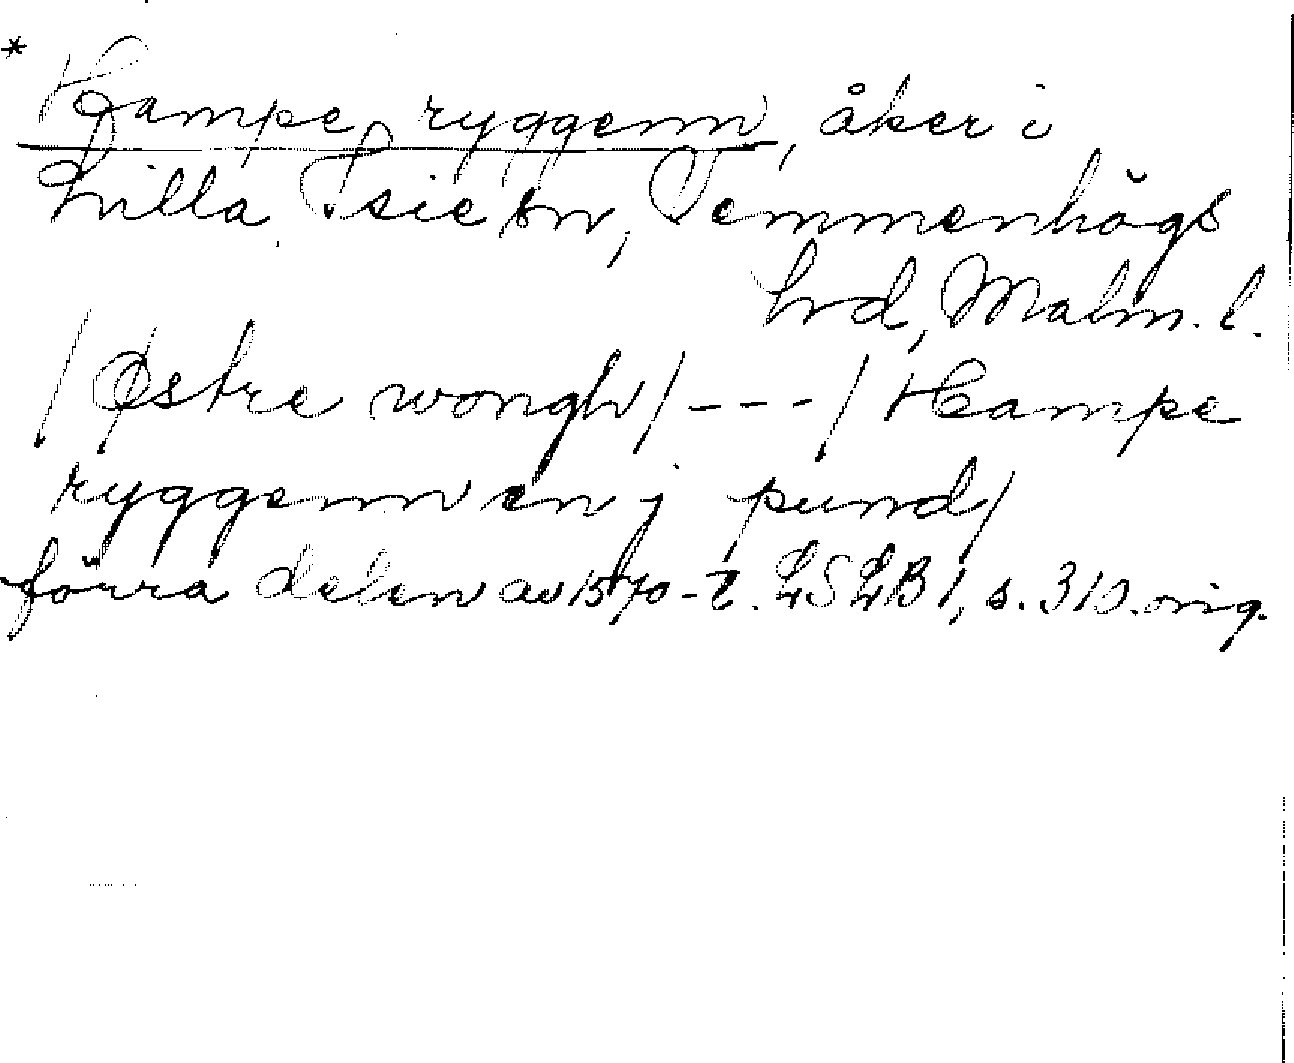 * Hampe ryggenn, åker i
Lilla Isie sn, Vemmenhögs
hrd, Malm. l.
/Østre wongh/ - - - / Hampe
ryggenn en j pund/
förra delen av 1570-t. LSLB 1, s. 310. orig.